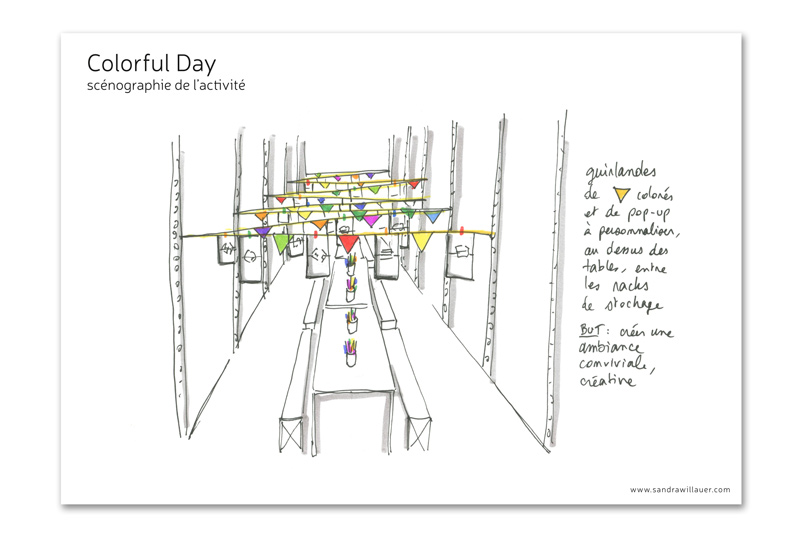 Colorful Day
scénographie de l'activité
guirlandes
de colorés
et de pop-up
à personnaliser,
au dessus des
tables, entre
les racks
de stockage
BUT : créer une
ambiance
conviviale,
créative
www.sandrawillauer.com